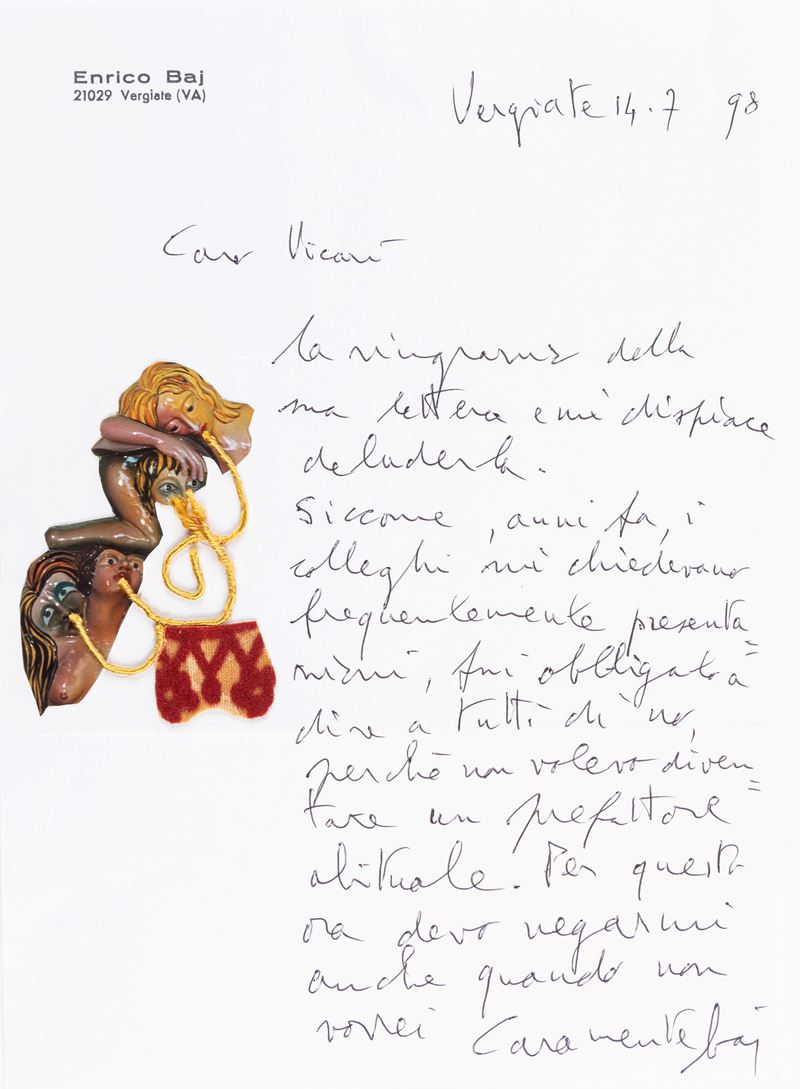 Enrico Baj
21029 Vergiate (VA)
Vergiate 14.7 98
Caro Vicari
La ringrazio della
sua lettera e mi dispiace
deluderla.
Siccome, anni fa, i
colleghi mi chiedevano
frequentemente presenta=
zioni, fui obbligato a
dire a tutti di no,
perchè non volevo diven=
tare un prefattore
abituale. Per questo
ora devo negarmi
anche quando non
vorrei Caramente baj